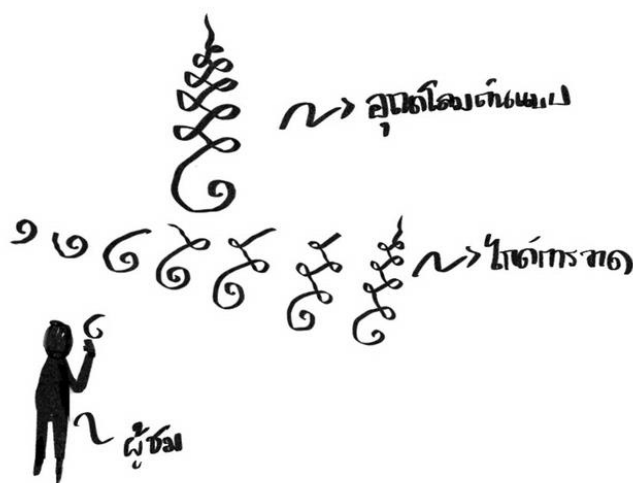 อุณาโลมต้นแบบ
ไกด์การวาด
ผู้ชม